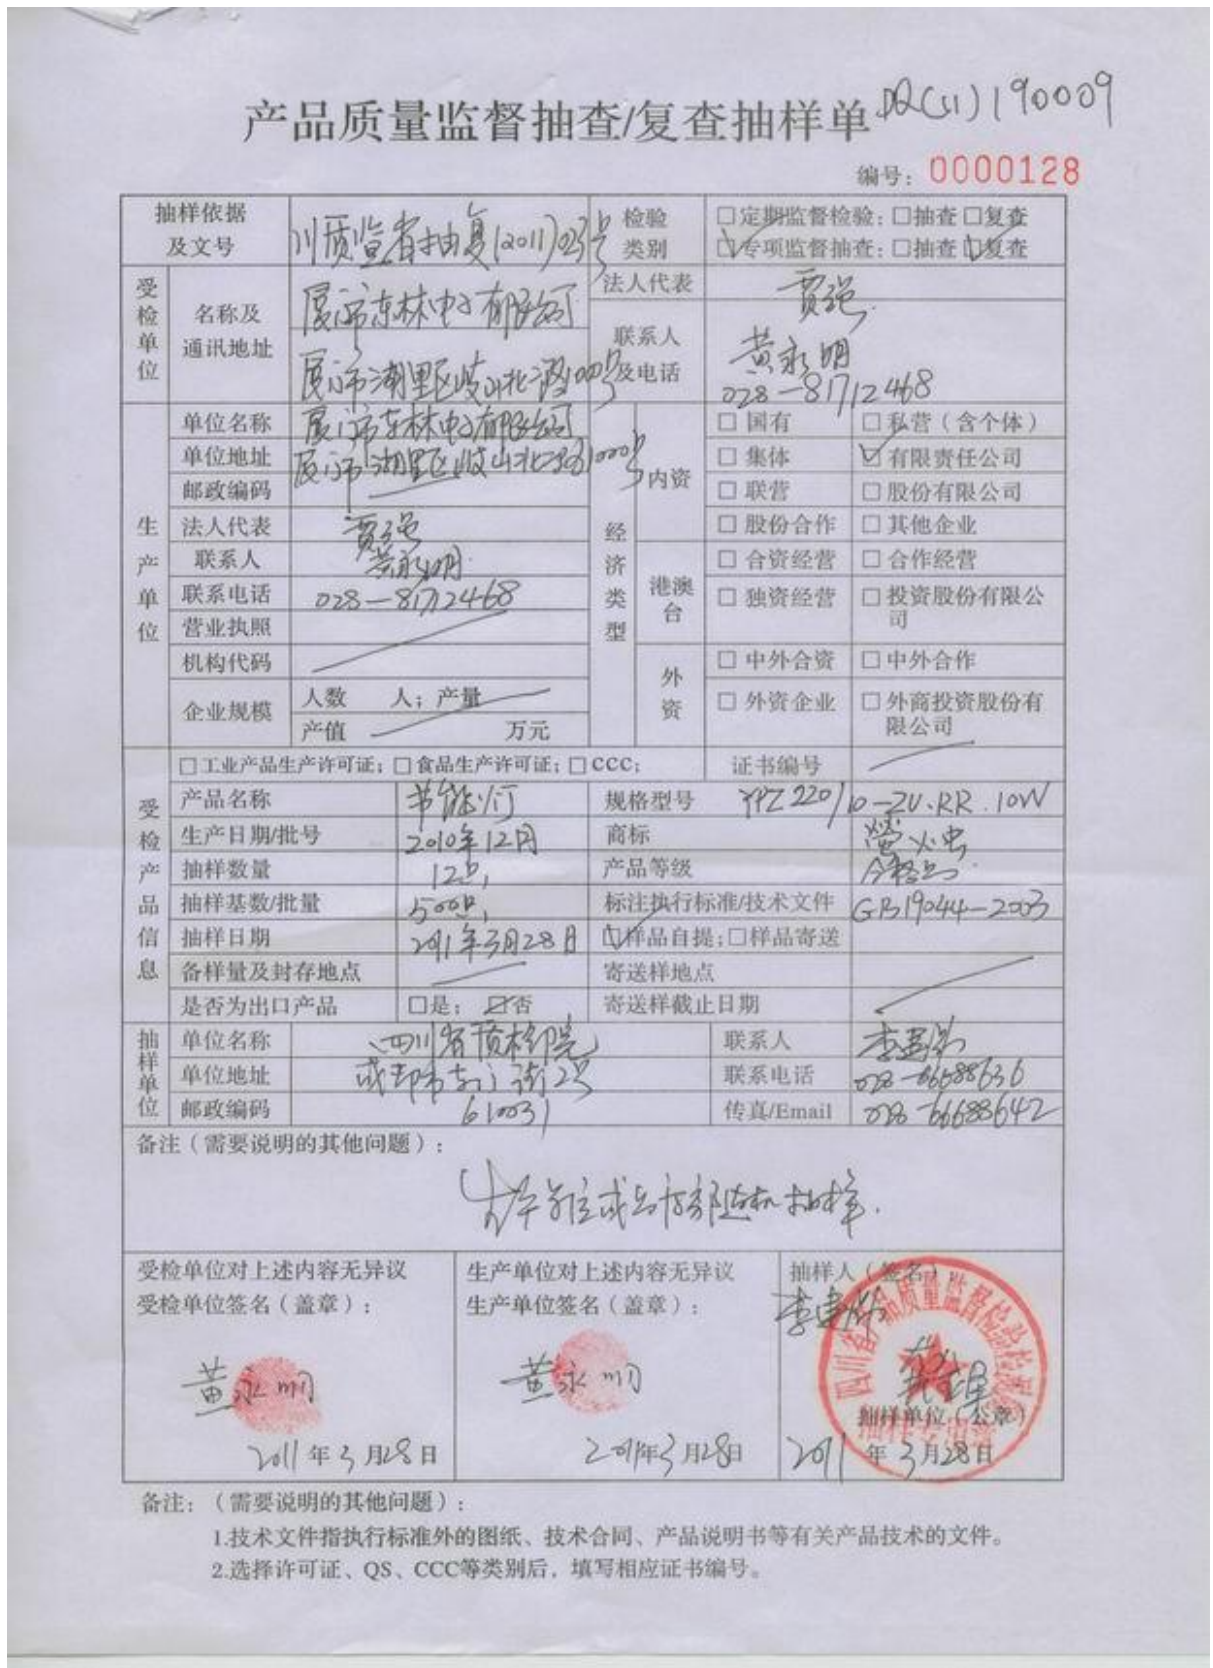 产品质量监督抽查/复查抽样单
(11)190009
编号: 0000128
抽样依据及文号 川质监省抽复(2011)023号
检验类别 □定期监督检验: □抽查 □复查
☑专项监督抽查: □抽查 ☑复查
受检单位
名称及通讯地址 厦门市东林电子有限公司
厦门市湖里区岐山北路1000号
法人代表 贾强
联系人及电话 黄永明
028-81712468
生产单位
单位名称 厦门市东林电子有限公司
单位地址 厦门市湖里区岐山北路1000号
邮政编码
法人代表 贾强
联系人 黄永明
联系电话 028-81712468
营业执照
机构代码
企业规模 人数 人; 产量
产值 万元
经济类型
内资
□国有 □私营（含个体）
□集体 ☑有限责任公司
□联营 □股份有限公司
□股份合作 □其他企业
港澳台
□合资经营 □合作经营
□独资经营 □投资股份有限公司
外资
□中外合资 □中外合作
□外资企业 □外商投资股份有限公司
受检产品信息
□工业产品生产许可证; □食品生产许可证; □CCC; 证书编号
产品名称 节能灯 规格型号 YPZ220/10-ZU.RR.10W
生产日期/批号 2010年12月 商标 萤火虫
抽样数量 12只 产品等级 合格品
抽样基数/批量 500只 标注执行标准/技术文件 GB19044-2003
抽样日期 2011年3月28日 ☑样品自提; □样品寄送
备样量及封存地点 寄送样地点
是否为出口产品 □是; ☑否 寄送样截止日期
抽样单位
单位名称 四川省质检院 联系人
单位地址 成都市东门街2号 联系电话 028-66688636
邮政编码 610031 传真/Email 028-66688642
备注（需要说明的其他问题）:
生产单位成品库房随机抽样.
受检单位对上述内容无异议 生产单位对上述内容无异议 抽样人（签名）:
受检单位签名（盖章）: 生产单位签名（盖章）:
黄永明 黄永明
四川省产品质量监督检验检测院
抽样单位（公章）
2011年3月28日 2011年3月28日 2011年3月28日
备注: （需要说明的其他问题）:
1.技术文件指执行标准外的图纸、技术合同、产品说明书等有关产品技术的文件。
2.选择许可证、QS、CCC等类别后，填写相应证书编号。